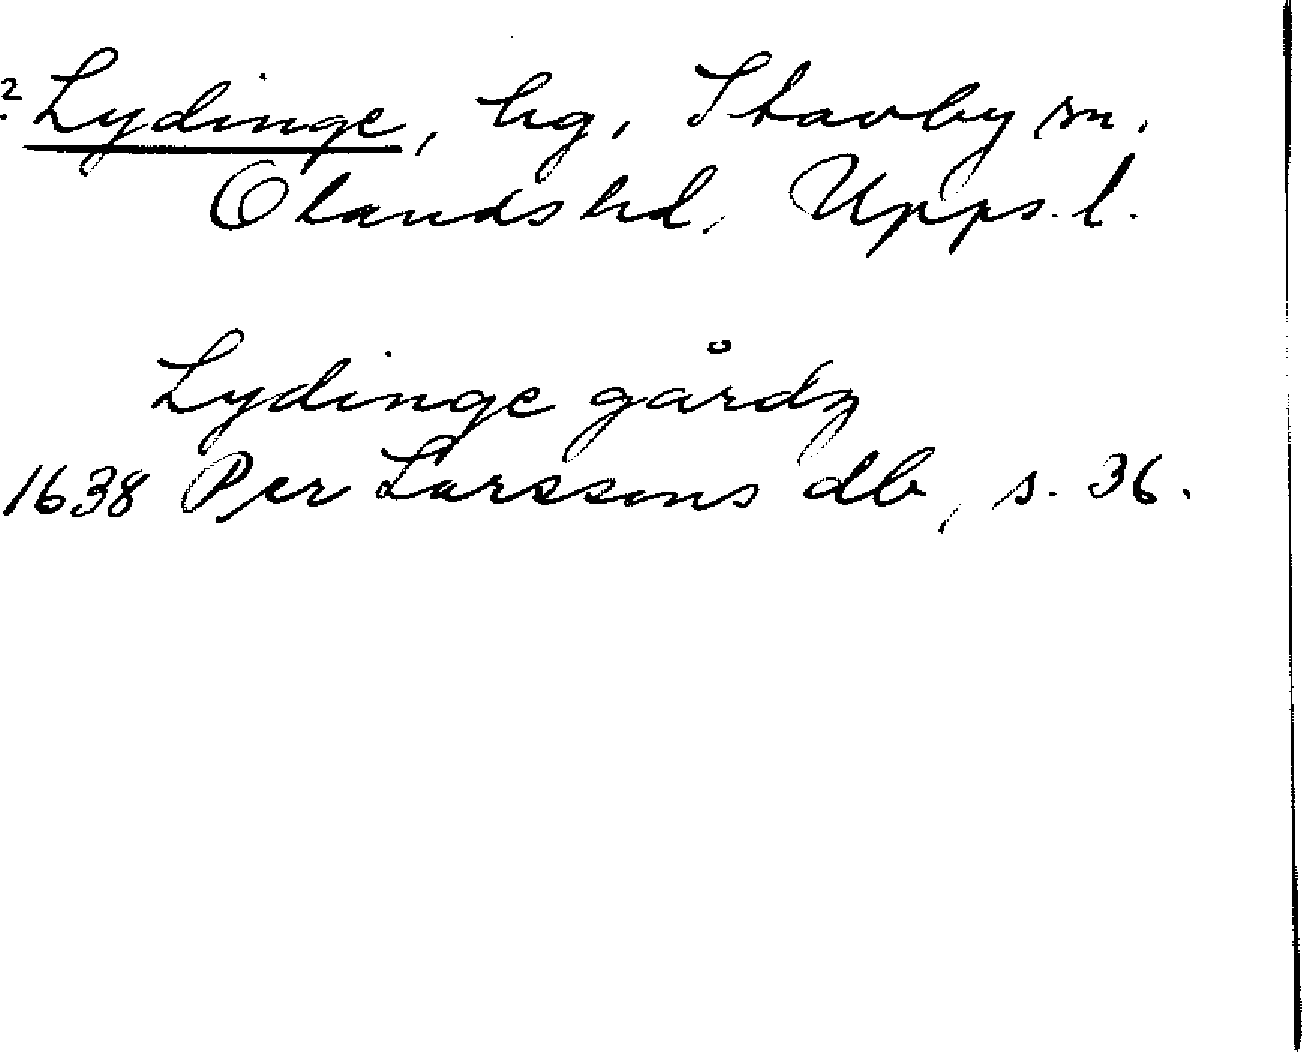 ? Lydinge, hg, Stavby sn.
Olands hd, Upps. l.
Lydinge gårdz
1638 Per Larssons db, s. 36.